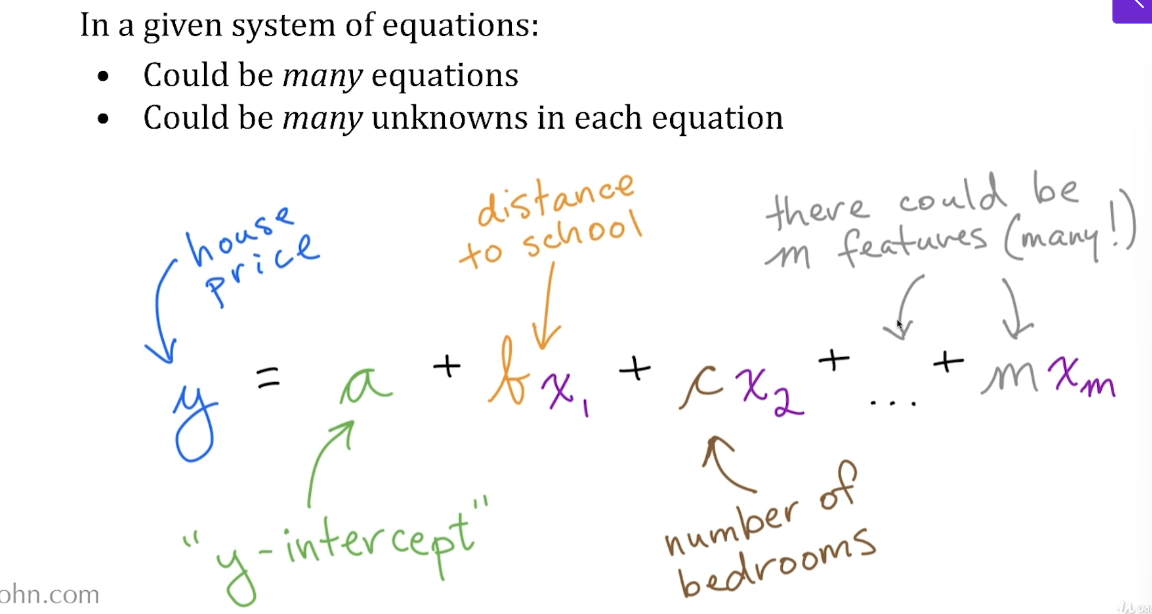 In a given system of equations:
• Could be many equations
• Could be many unknowns in each equation
house
price
distance
to school
there could be
m features (many!)
y = a + bx₁ + cx₂ + ... + mxₘ
"y-intercept"
number of
bedrooms
ohn.com